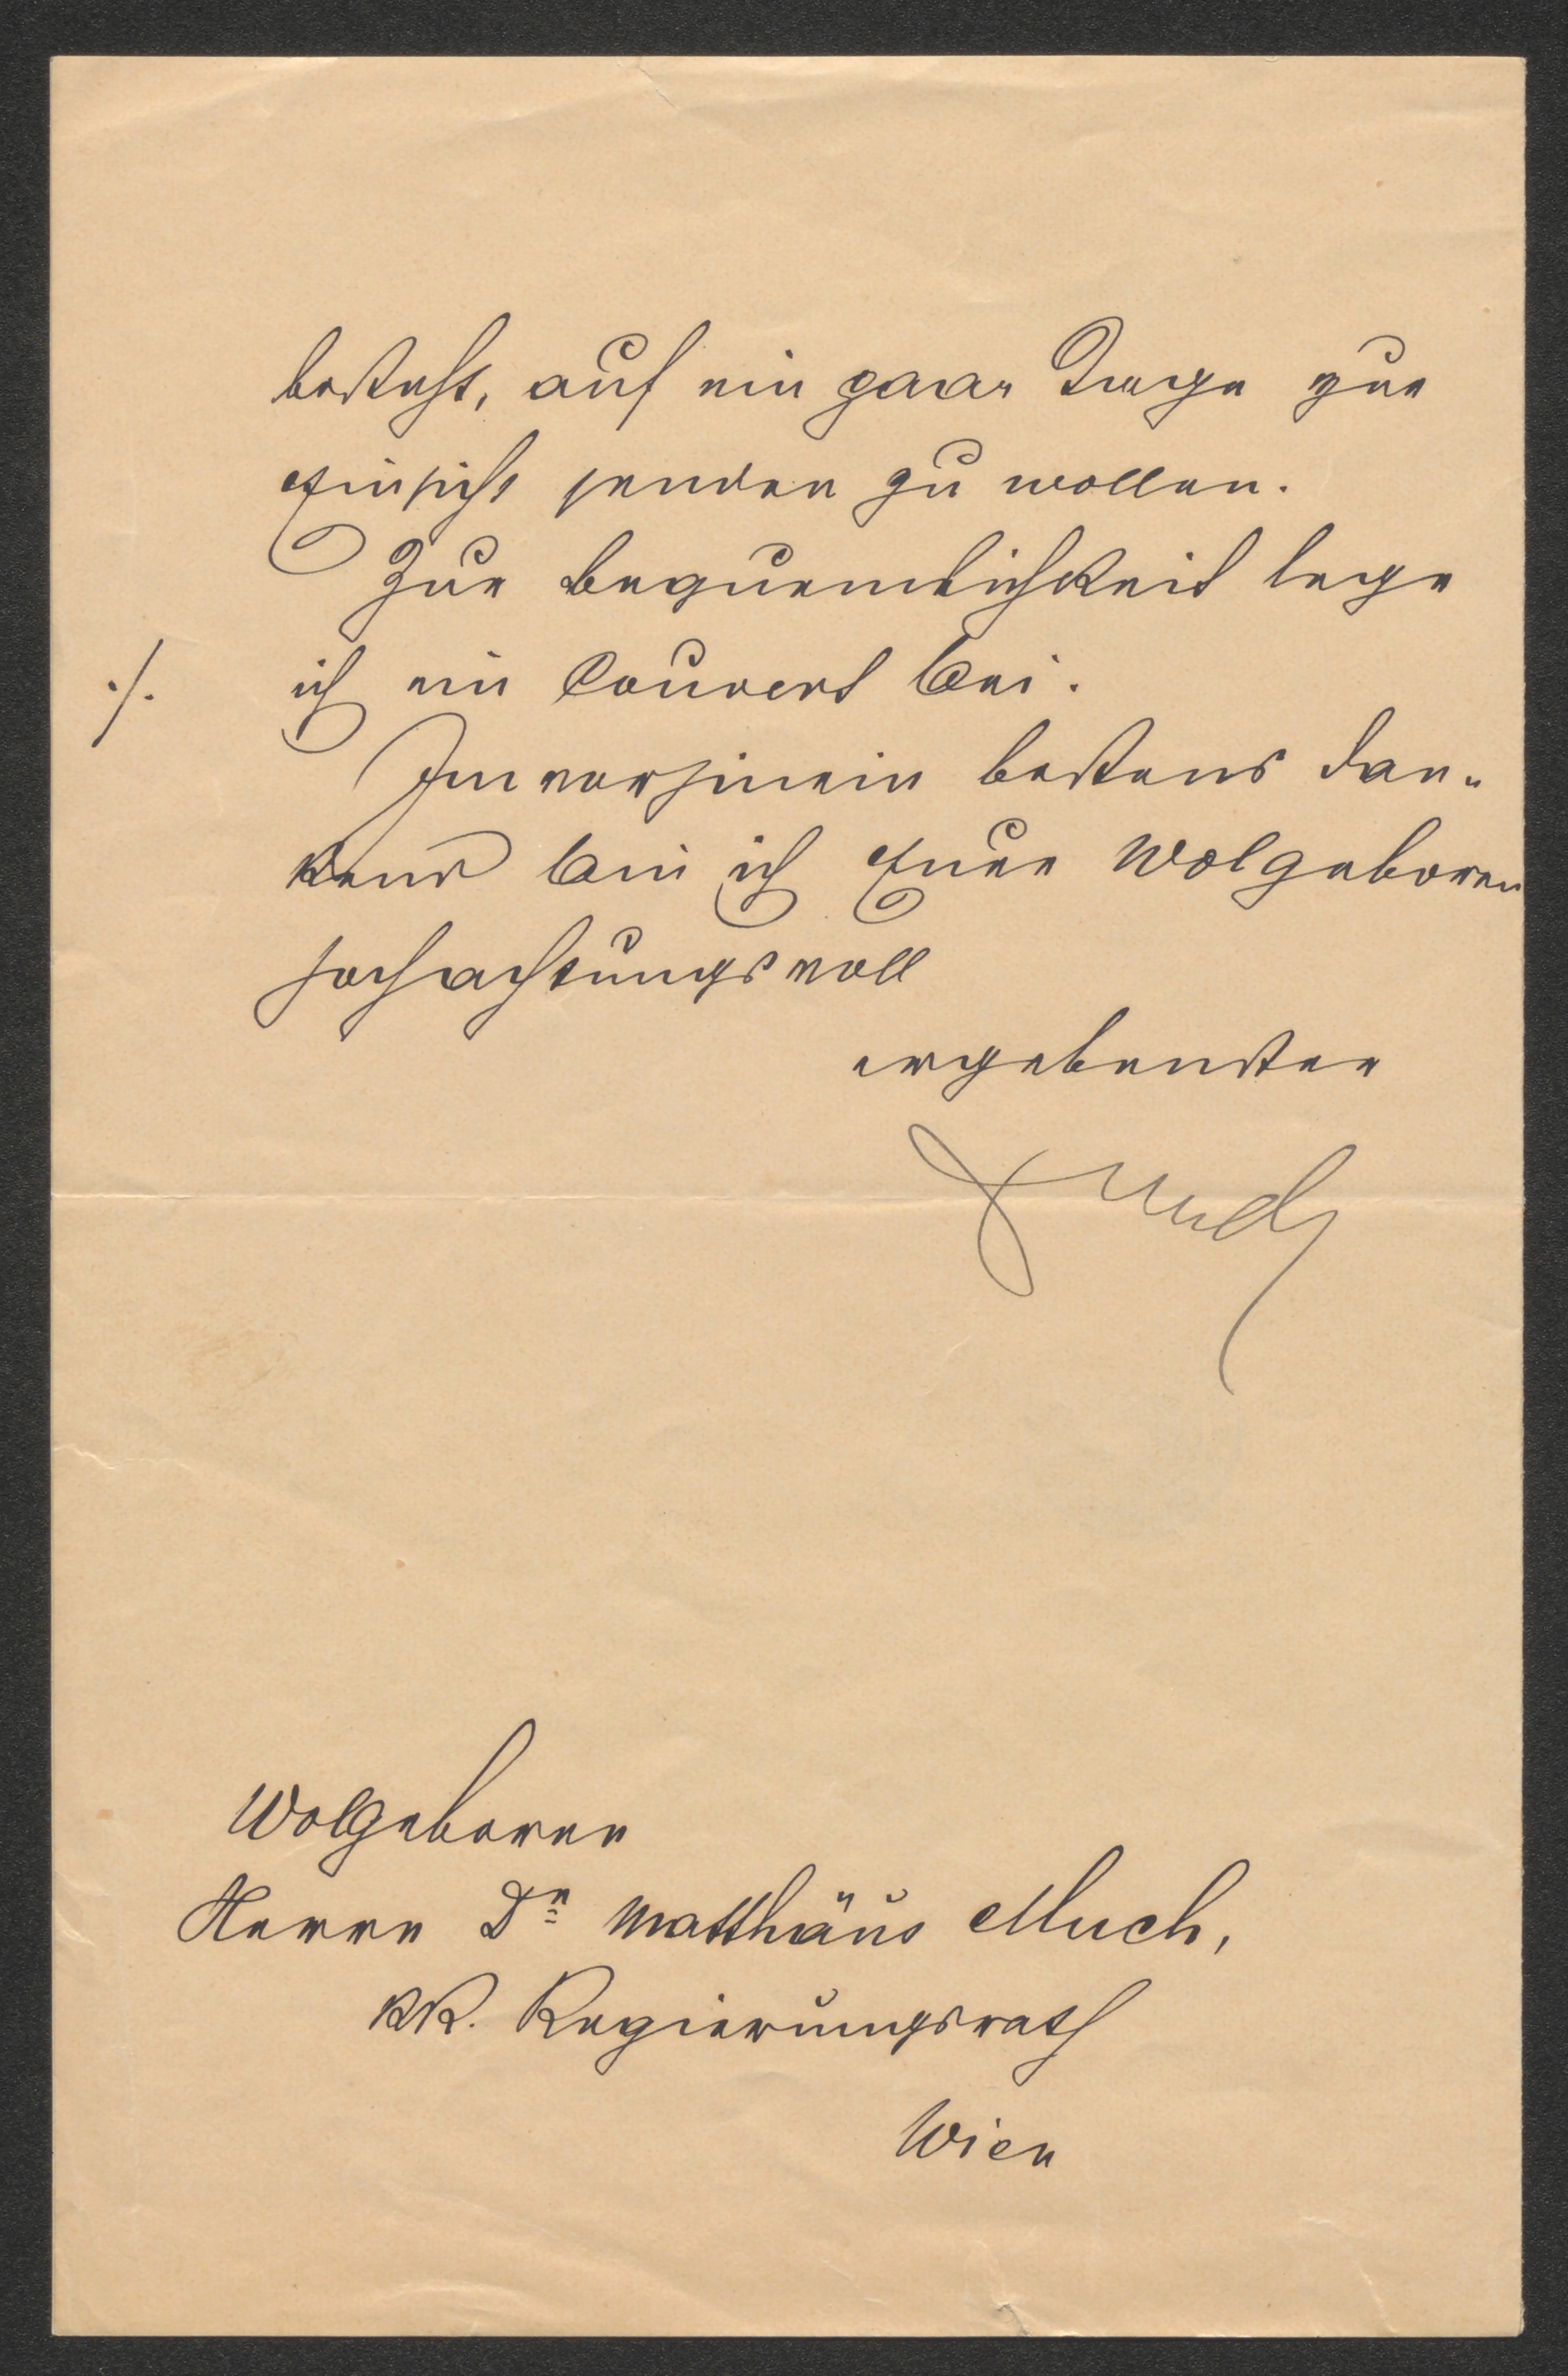 besteht, auf ein paar Tage zur
Einsicht senden zu wollen.
Zur Bequemlichkeit lege
./. ich ein Couvert bei.
Im vorhinein bestens dan-
kend bin ich Euer Wolgeboren
hochachtungsvoll
ergebenster
Wolgeboren
Herrn Dr Matthäus Much,
kk. Regierungsrath
Wien